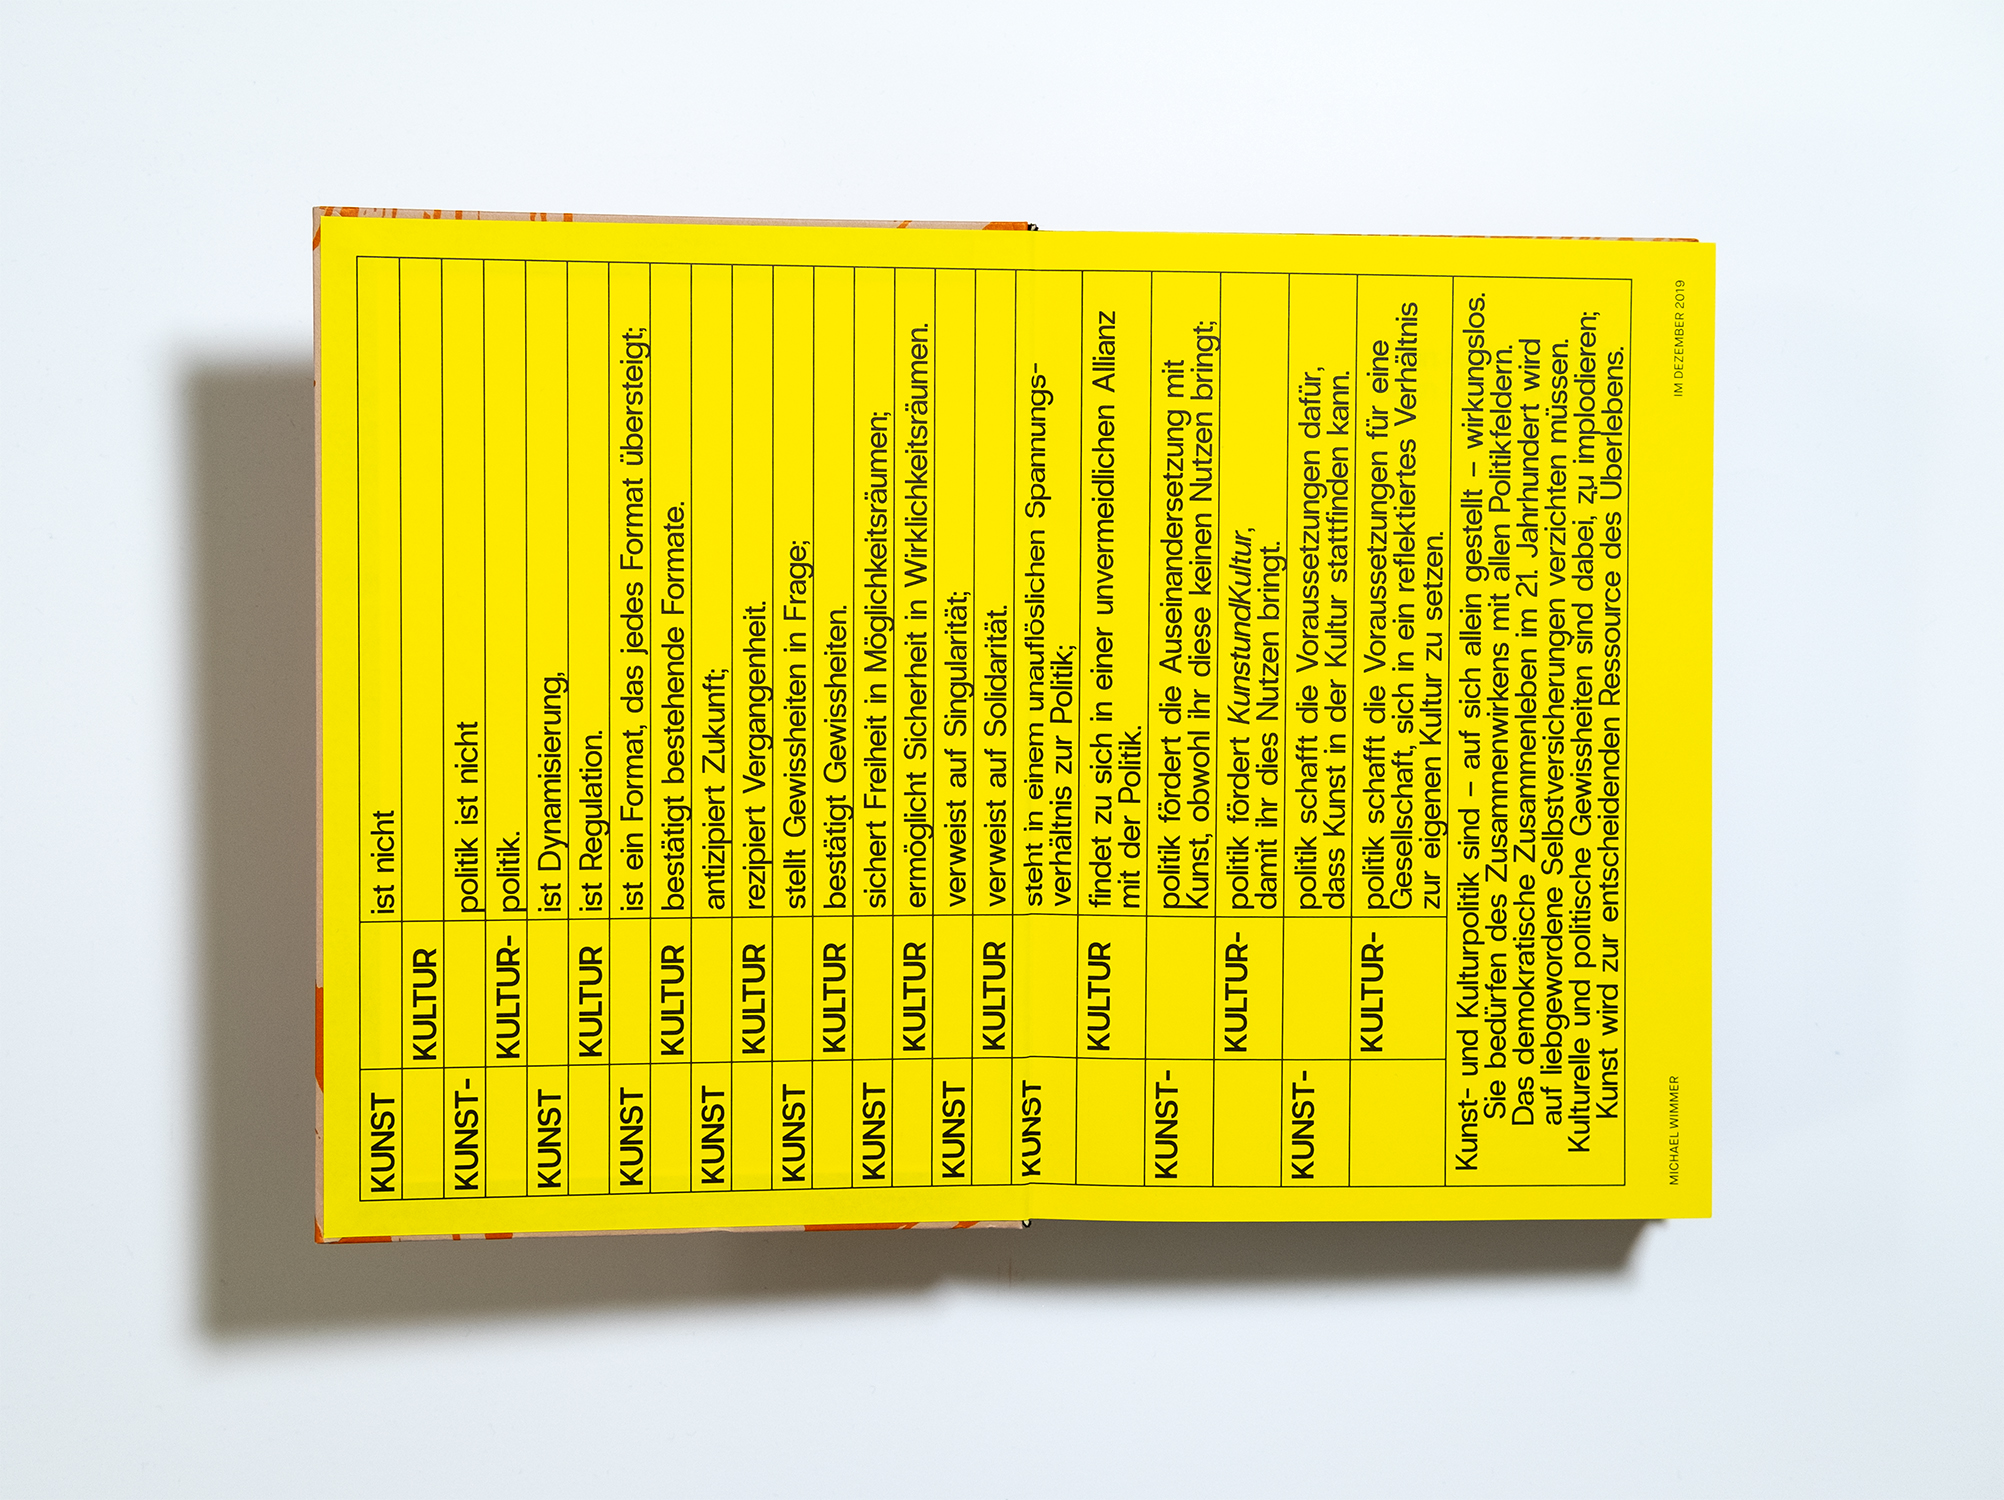 KUNST ist nicht
KULTUR
KUNST- politik ist nicht
KULTUR- politik.
KUNST ist Dynamisierung,
KULTUR ist Regulation.
KUNST ist ein Format, das jedes Format übersteigt;
KULTUR bestätigt bestehende Formate.
KUNST antizipiert Zukunft;
KULTUR rezipiert Vergangenheit.
KUNST stellt Gewissheiten in Frage;
KULTUR bestätigt Gewissheiten.
KUNST sichert Freiheit in Möglichkeitsräumen;
KULTUR ermöglicht Sicherheit in Wirklichkeitsräumen.
KUNST verweist auf Singularität;
KULTUR verweist auf Solidarität.
KUNST steht in einem unauflöslichen Spannungs-
verhältnis zur Politik;
KULTUR findet zu sich in einer unvermeidlichen Allianz
mit der Politik.
KUNST- politik fördert die Auseinandersetzung mit
Kunst, obwohl ihr diese keinen Nutzen bringt;
KULTUR- politik fördert KunstundKultur,
damit ihr dies Nutzen bringt.
KUNST- politik schafft die Voraussetzungen dafür,
dass Kunst in der Kultur stattfinden kann.
KULTUR- politik schafft die Voraussetzungen für eine
Gesellschaft, sich in ein reflektiertes Verhältnis
zur eigenen Kultur zu setzen.
Kunst- und Kulturpolitik sind – auf sich allein gestellt – wirkungslos.
Sie bedürfen des Zusammenwirkens mit allen Politikfeldern.
Das demokratische Zusammenleben im 21. Jahrhundert wird
auf liebgewordene Selbstversicherungen verzichten müssen.
Kulturelle und politische Gewissheiten sind dabei, zu implodieren;
Kunst wird zur entscheidenden Ressource des Überlebens.
MICHAEL WIMMER IM DEZEMBER 2019